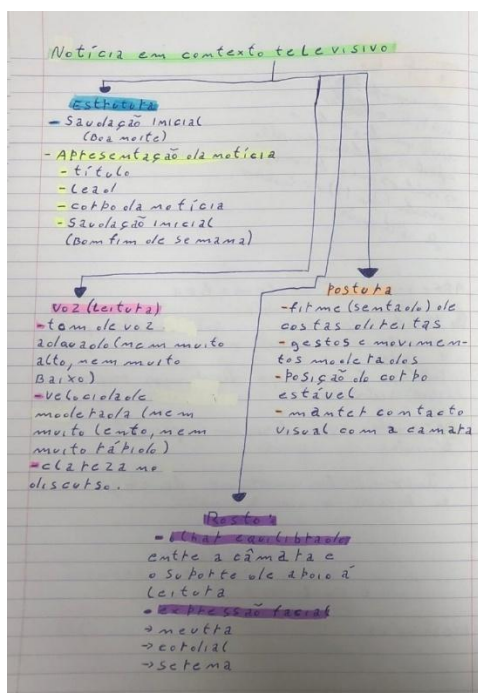 Notícia em contexto televisivo
Estrutura
- Saudação inicial
(Boa noite)
- Apresentação da notícia
- título
- Lead
- corpo da notícia
- Saudação inicial
(Bom fim de semana)
Voz (Leitura)
- tom de voz
adequado (nem muito
alto, nem muito
Baixo)
- velocidade
moderada (nem
muito lento, nem
muito rápido)
- clareza no
discurso.
Postura
- firme (sentado) de
costas direitas
- gestos e movimen-
tos moderados
- Posição do corpo
estável
- manter contacto
visual com a camara
Rosto:
- olhar equilibrado
entre a câmara e
o suporte de apoio á
Leitura
- expressão facial
→ neutra
→ cordial
→ serena